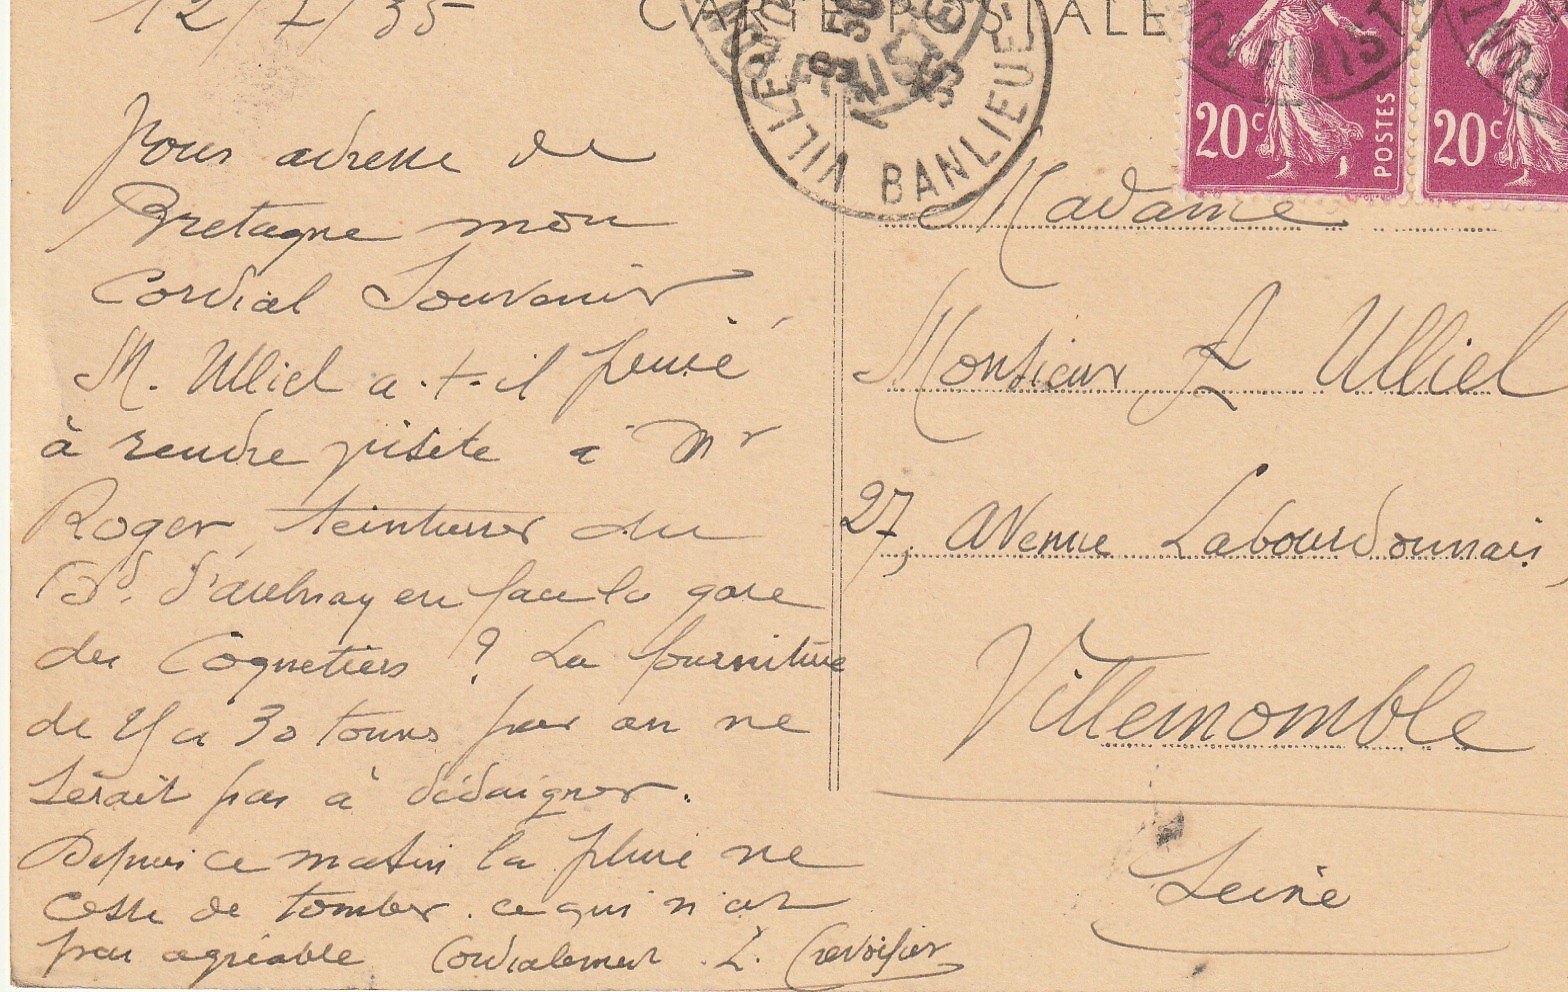 12/7/35
CARTE POSTALE
Vous adresse de
Bretagne mon
Cordial Souvenir
M. Ulliel a-t-il pensé
à rendre visite à Mr
Roger, teinturier du
Bd. d'aulnay en face la gare
du Coquetiers ? La fourniture
de 4 à 30 tonnes par an ne
serait pas à dédaigner.
Depuis ce matin la pluie ne
cesse de tomber. ce qui n'est
pas agréable Cordialement L. Crevoisier
BANLIEUE
20c POSTES
20c
Madame
Monsieur A Ulliel
27, Avenue Labourdonnais,
Villemomble
Seine